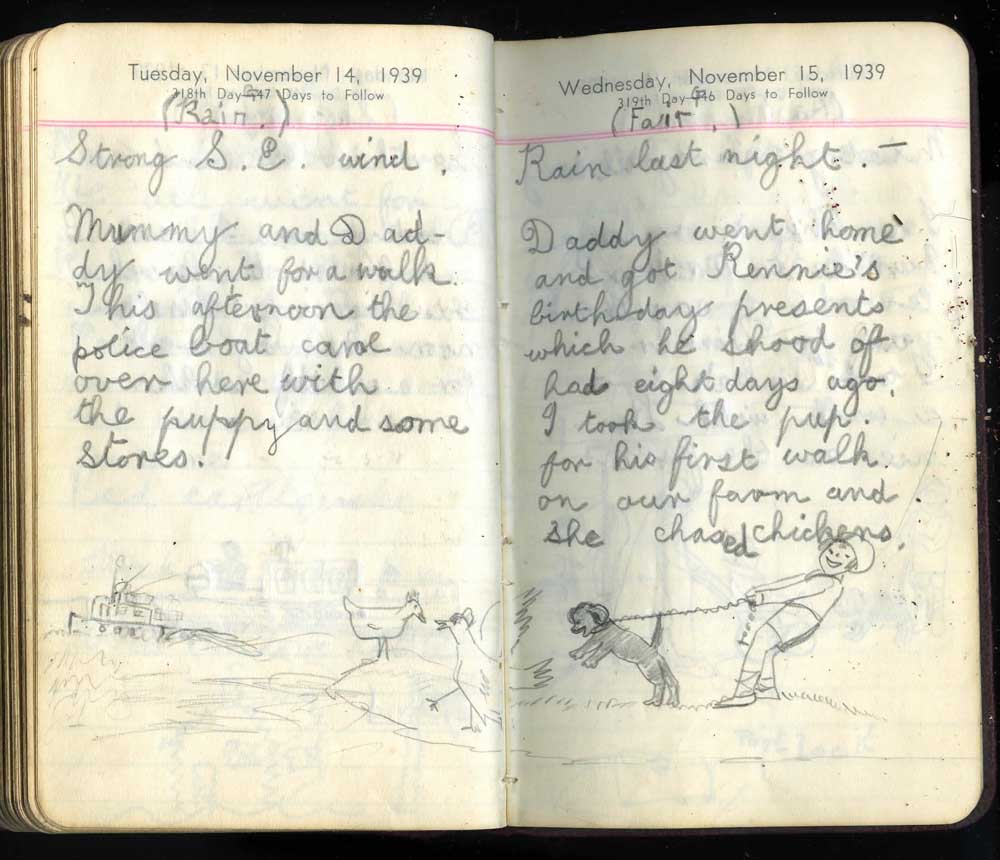 Tuesday, November 14, 1939
318th Day—47 Days to Follow
(Rain.)
Strong S. E. wind.
Mummy and Dad-
dy went for a walk.
This afternoon the
police boat came
over here with
the puppy and some
stores.
Wednesday, November 15, 1939
319th Day—46 Days to Follow
(Fair.)
Rain last night. —
Daddy went home
and got Rennie's
birthday presents
which he shood of
had eight days ago.
I took the pup.
for his first walk.
on our farm and.
she chased chickens.